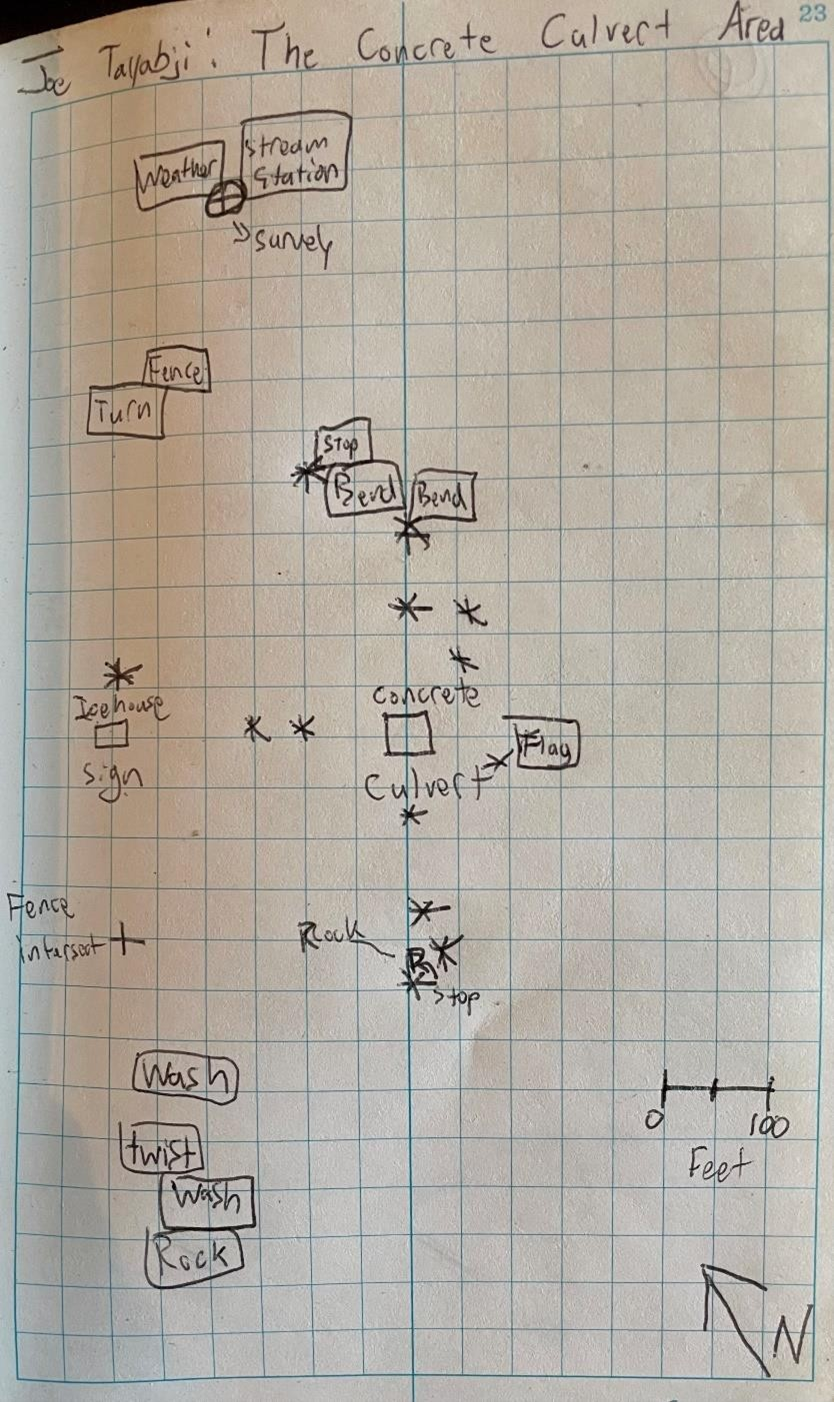 23
Joe Tayabji: The Concrete Culvert Area
Weather
Stream
Station
Survey
Fence
Turn
Stop
Bend
Bend
Icehouse
Sign
Concrete
Culvert
Flag
Fence
Intersect
Rock
R
Stop
Wash
twist
Wash
Rock
0
100
Feet
N